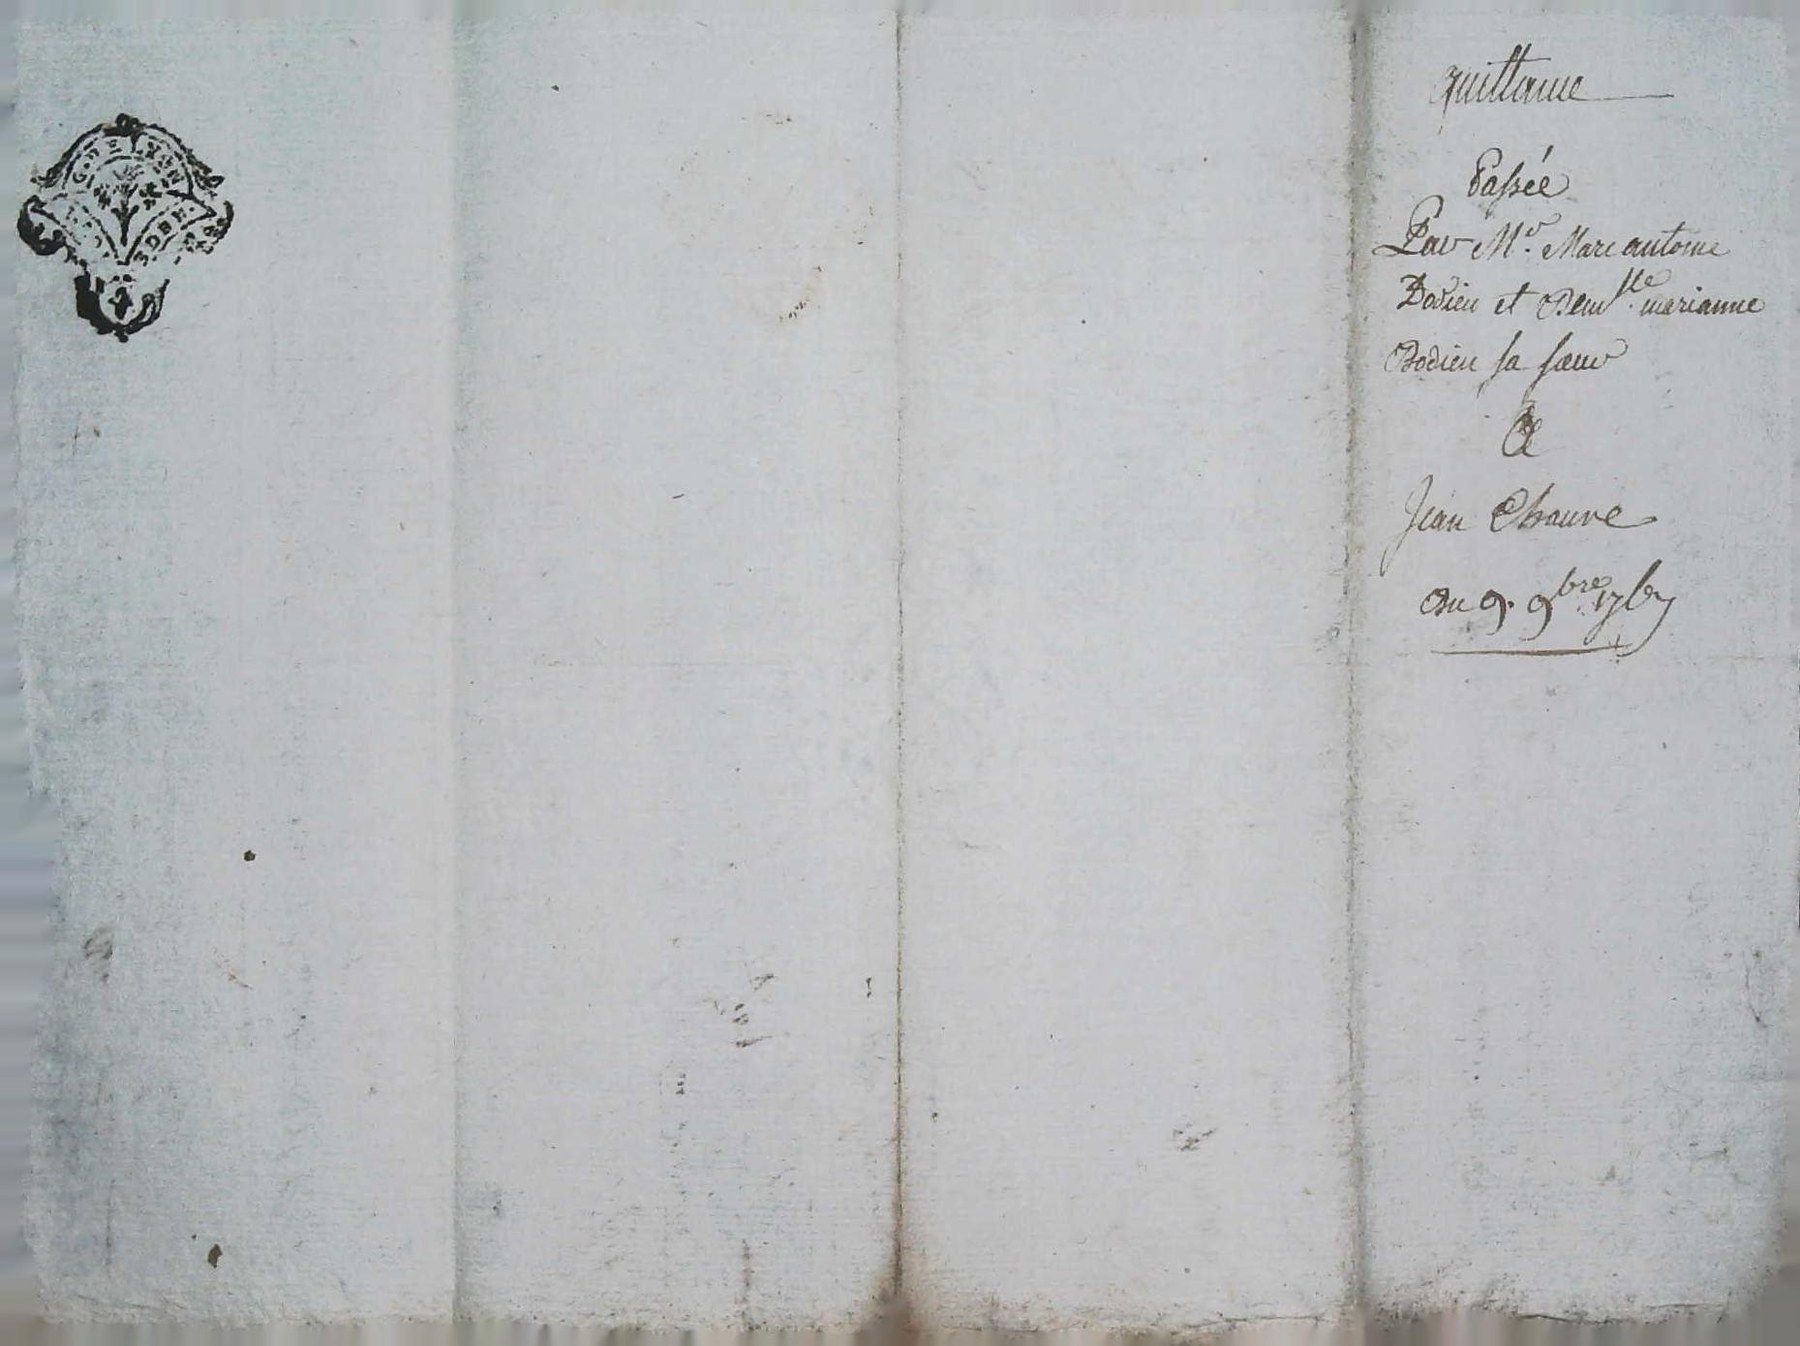 quittance
Passée
Par Mr. Marc antoine
Bodien et Demlle. marianne
Bodien sa sœur
A
Jean Chauve
Du 9. 9bre. 1767